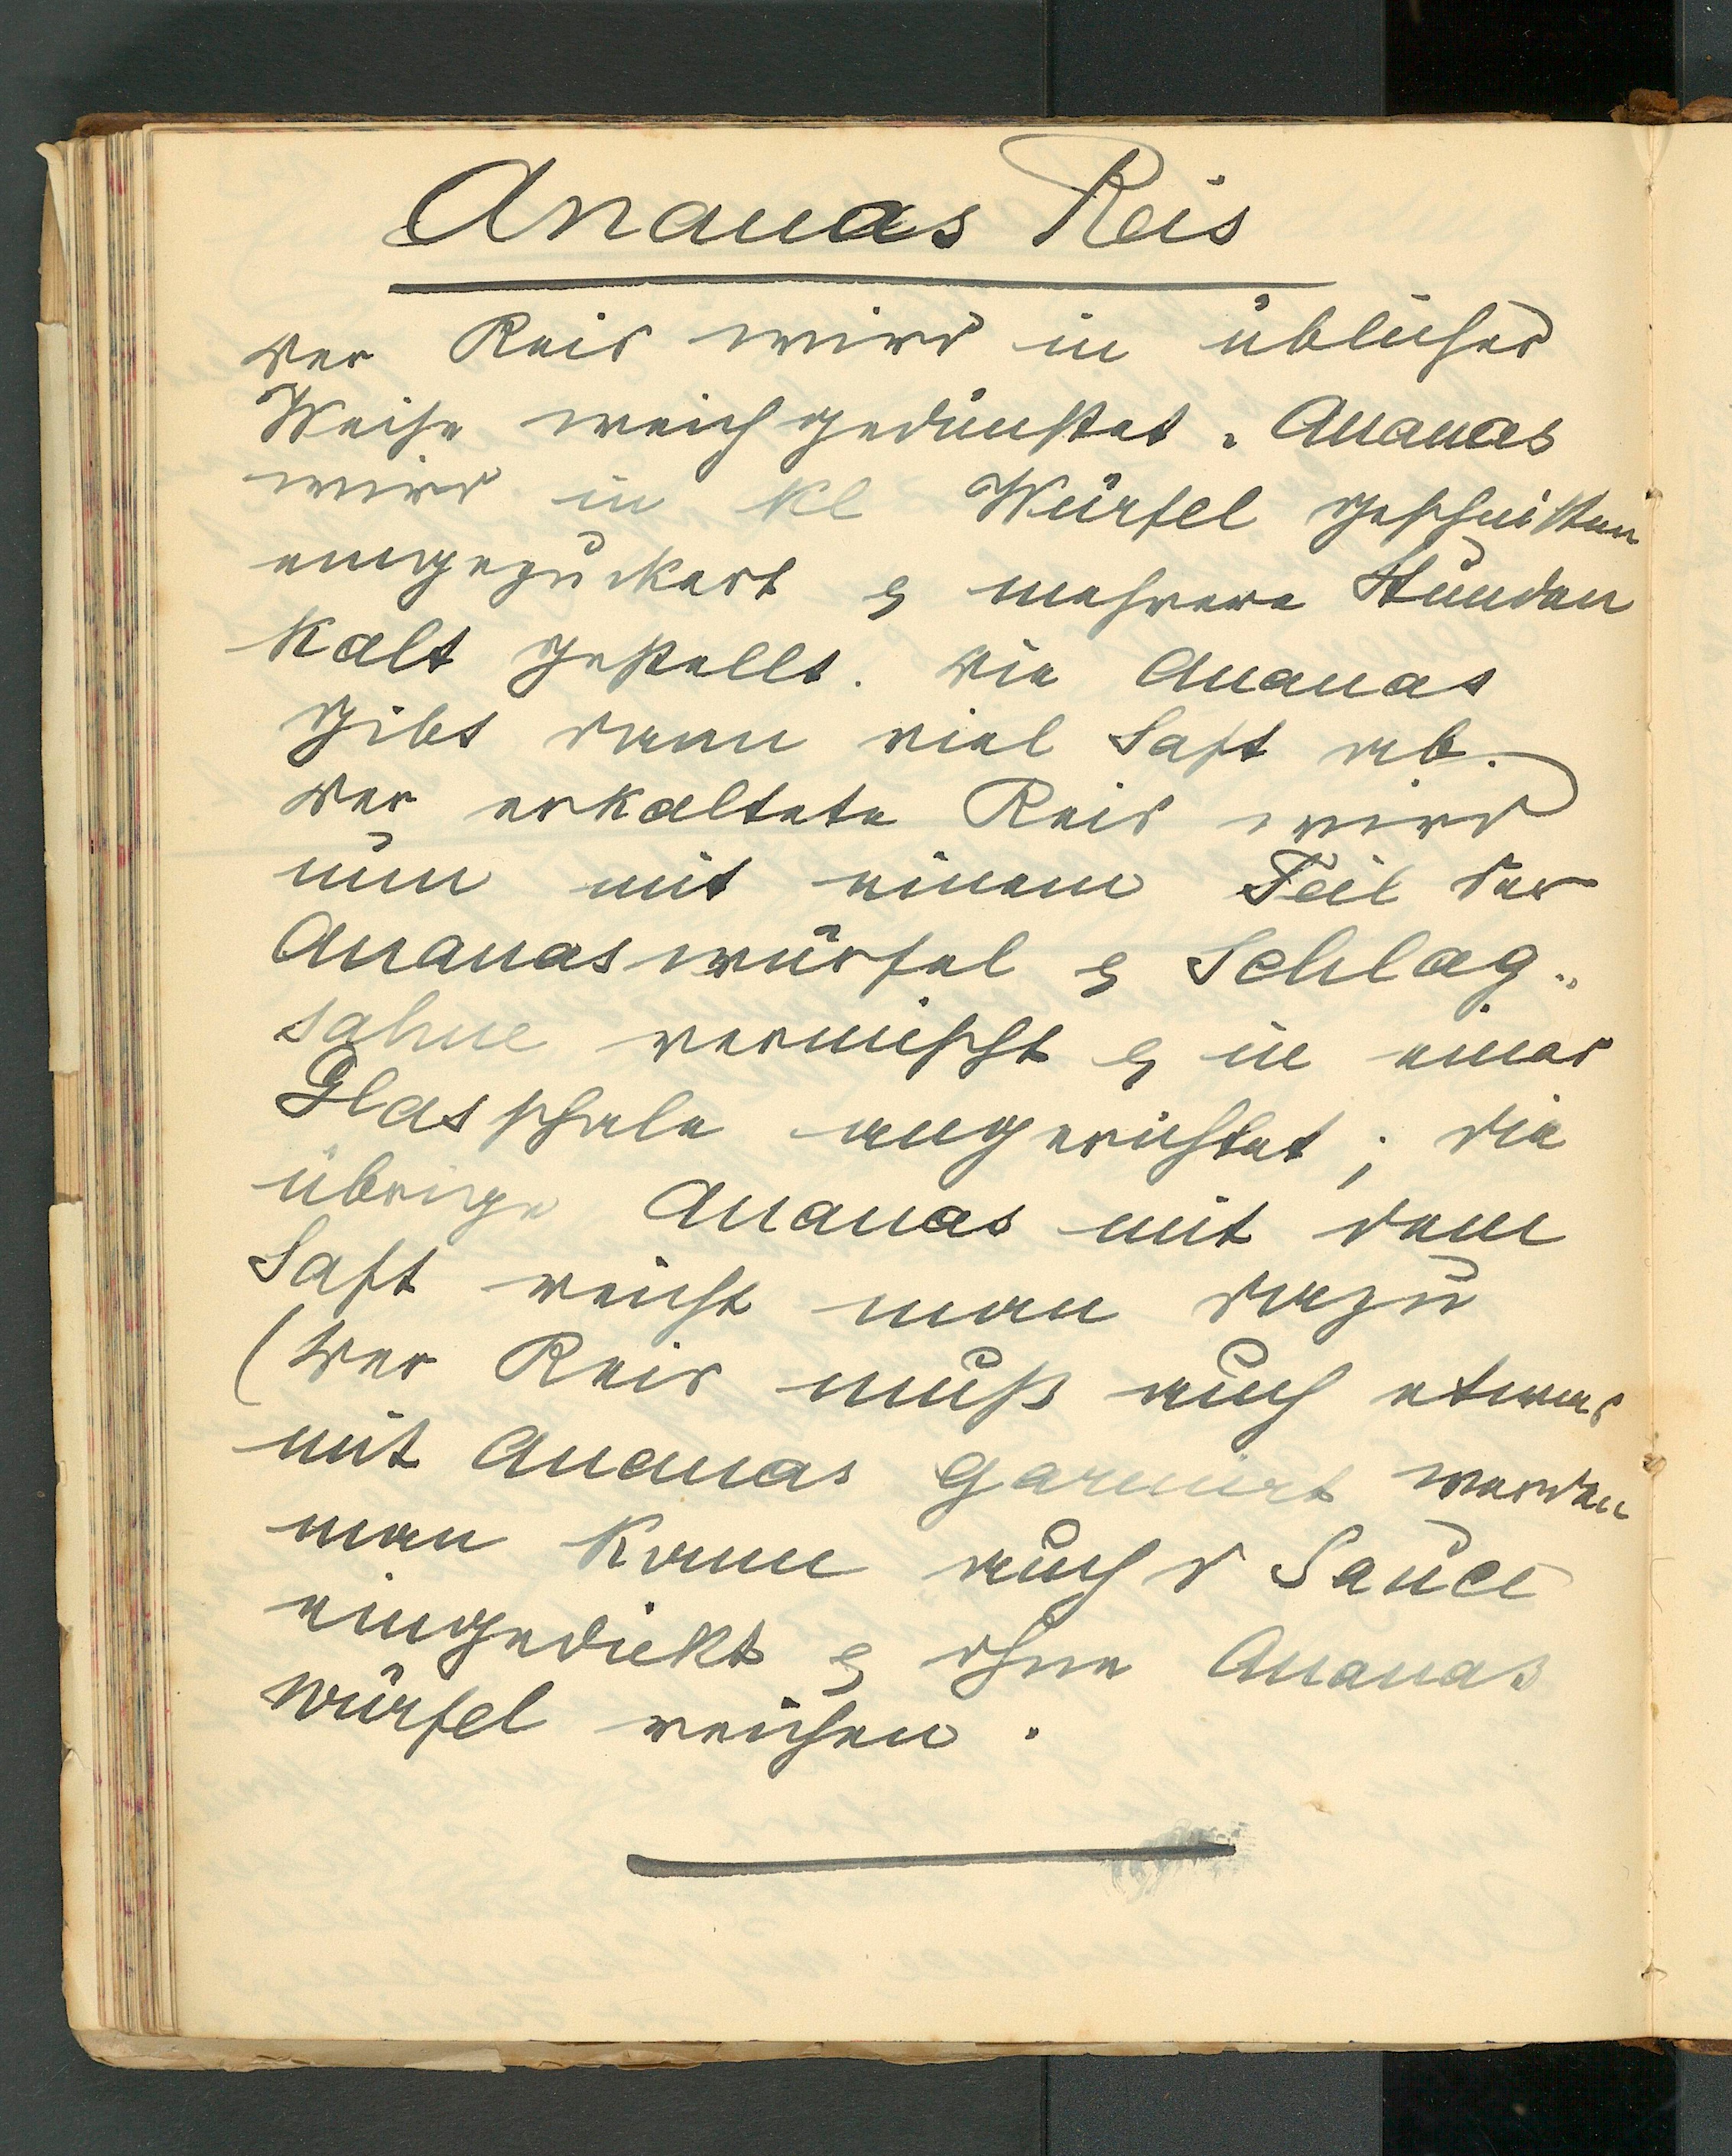 Ananas Reis
der Reis wird in üblicher
Weise weich gedünstet. Ananas
wird in kl Würfel geschnitten
eingezuckert & mehrere Stunden
kalt gestellt. die Ananas
gibt dann viel Saft ab.
der erkaltete Reis wird
nun mit einem Teil der
Ananaswürfel & Schlag-
sahne vermischt & in einer
Glasschale angerichtet; die
übrige Ananas mit dem
Saft reicht man dazu
(der Reis muß auch etwas
mit Ananas garniert werden
man kann auch d Sauce
eingedickt & ohne Ananas
würfel reichen.